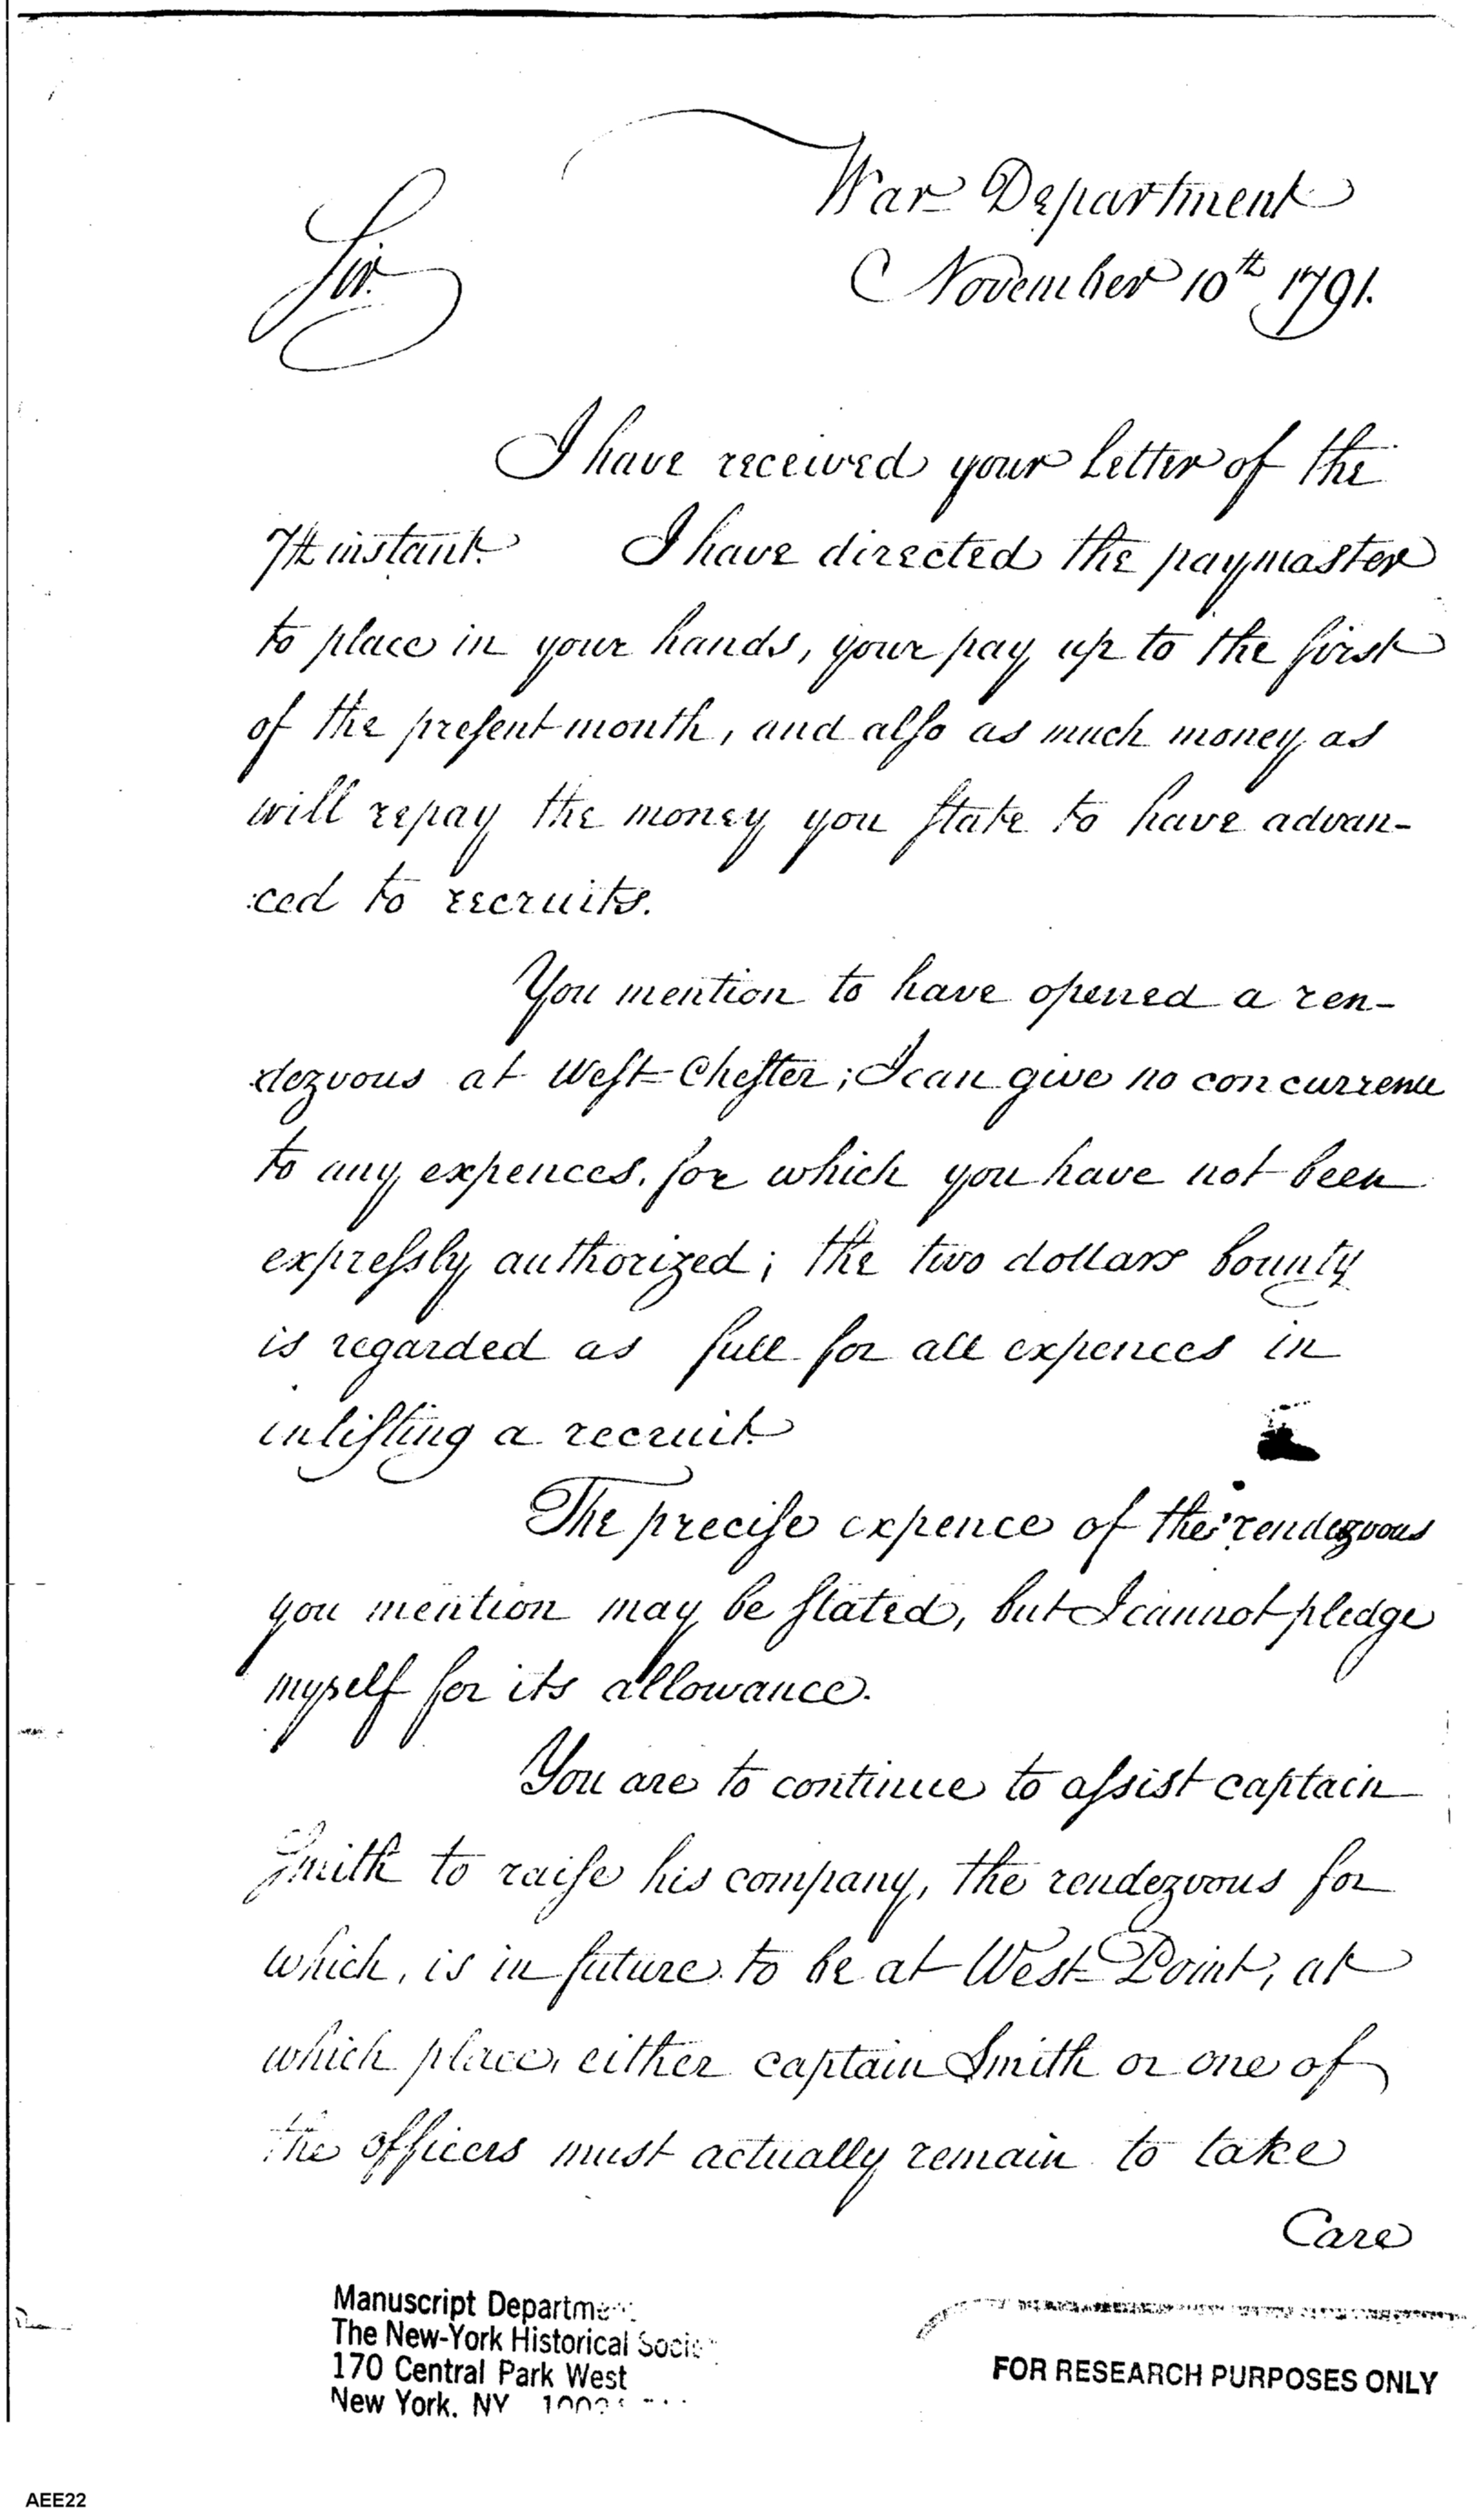 War Department
November 10th 1791.
Sir.
I have received your letter of the
7th instant. I have directed the paymaster
to place in your hands, your pay up to the first
of the preſent month, and alſo as much money as
will repay the money you ſtate to have advan-
ced to recruits.
You mention to have opened a ren-
dezvous at Weſt-Cheſter; I can give no concurrence
to any expences, for which you have not been
expreſsly authorized; the two dollars bounty
is regarded as full for all expences in
inliſting a recruit.
The preciſe expence of the rendezvous
you mention may be ſtated, but I cannot pledge
myself for its allowance.
You are to continue to aſsist captain
Smith to raiſe his company, the rendezvous for
which, is in future to be at West-Point, at
which place, either captain Smith or one of
the officers must actually remain to take
Care
Manuscript Department
The New-York Historical Socie
170 Central Park West
New York, NY
FOR RESEARCH PURPOSES ONLY
AEE22